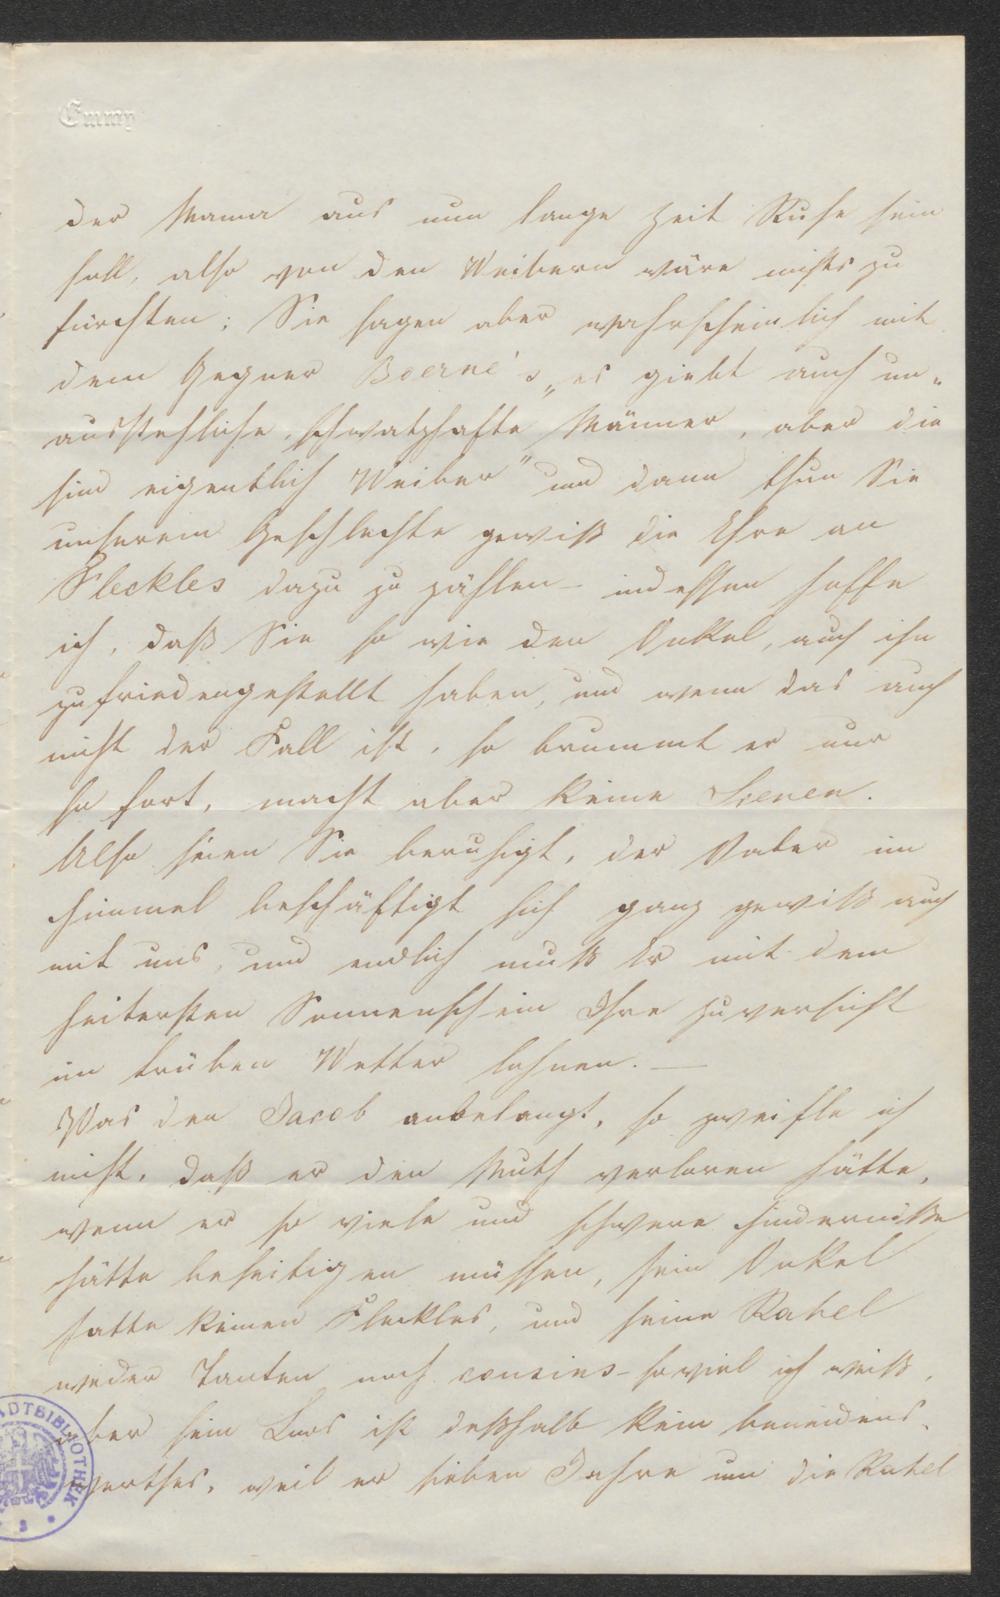 Emmy
der Mama aus nun lange Zeit Ruhe sein
soll, also von den Weibern wäre nichts zu
fürchten; Sie sagen aber wahrscheinlich mit
dem Gegner Boerne's „es giebt auch un„
ausstehliche, schwatzhafte Männer, aber die
sind eigentlich Weiber" und dann thun Sie
unserem Geschlechte gewiß die Ehre an
Fleckles dazu zu zählen – indessen hoffe
ich, daß Sie so wie den Onkel, auch ihn
zufriedengestellt haben, und wenn das auch
nicht der Fall ist, so brummt er nur
so fort, macht aber keine Scenen.
Also seien Sie beruhigt, der Vater im
Himmel beschäftigt sich ganz gewiß auch
mit uns, und endlich muß Er mit dem
heitersten Sonnenschein Ihre Zuversicht
im trüben Wetter lohnen. —
Was den Jacob anbelangt, so zweifle ich
nicht, daß er den Muth verloren hätte,
wenn er so viele und schwere Hindernisse
hätte beseitigen müssen, sein Onkel
hatte keinen Fleckles, und seine Rahel
weder Tanten noch cousins – soviel ich weiß,
aber sein Loos ist deßhalb kein beneidens„
werthes, weil er sieben Jahre um die Rahel
STADTBIBLIOTHEK